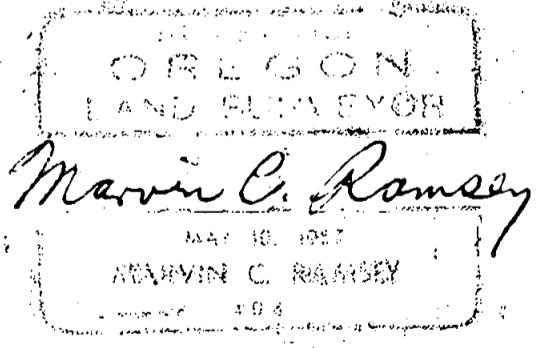 OREGON
LAND SURVEYOR
Marvin C. Ramsey
MAY 10, 1957
MARVIN C. RAMSEY
494